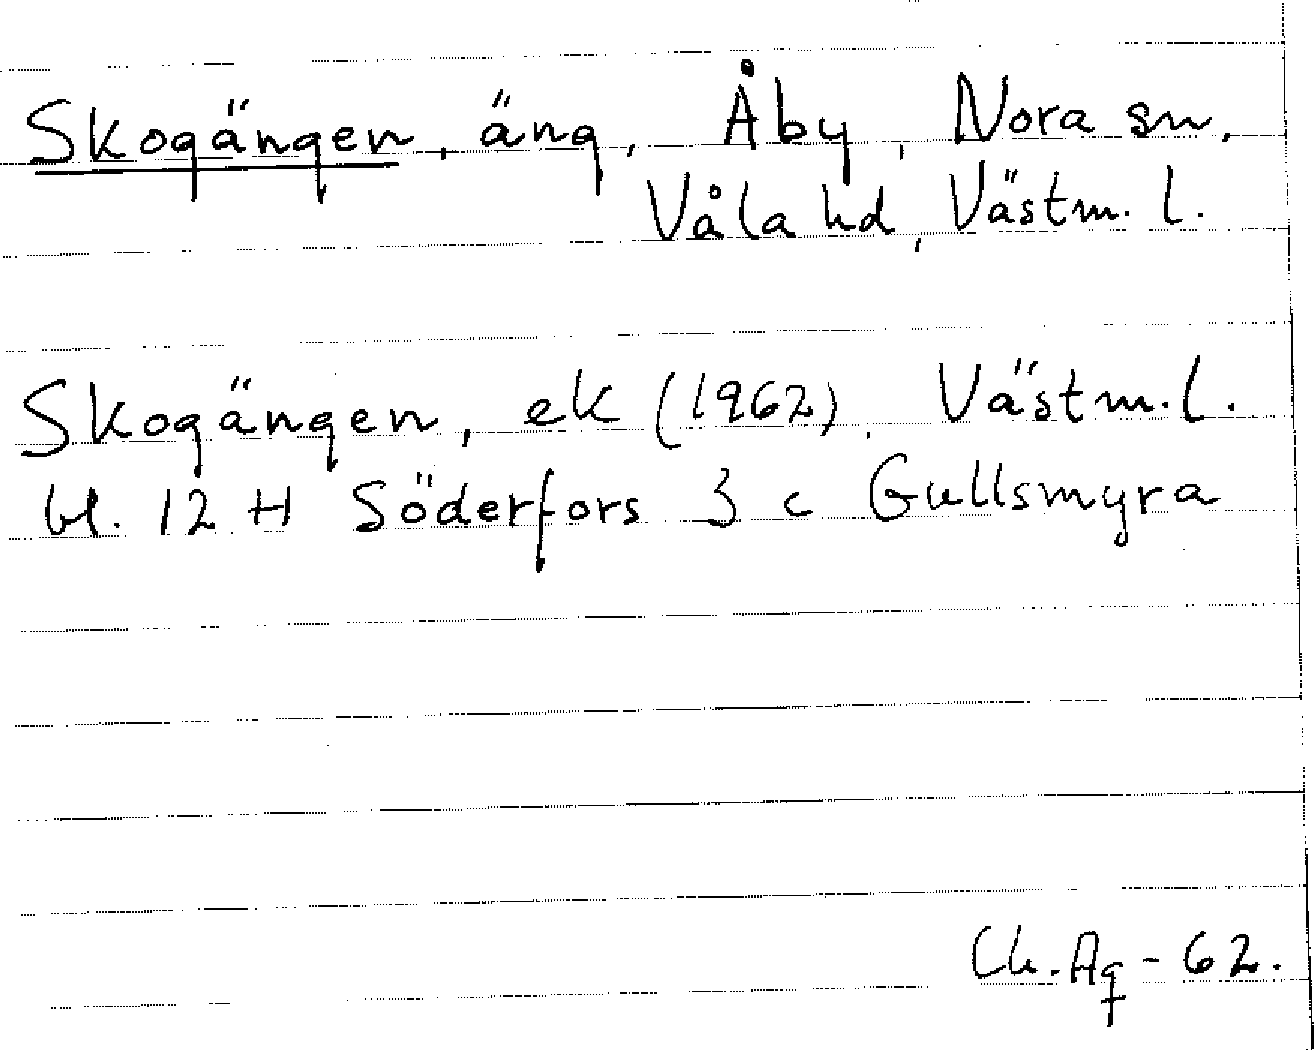 Skogängen, äng, Åby, Nora sn,
Våla hd, Västm. l.
Skogängen, ek (1962), Västm. l.
bl. 12 H Söderfors 3 c Gullsmyra
Ch. Aq - 62.